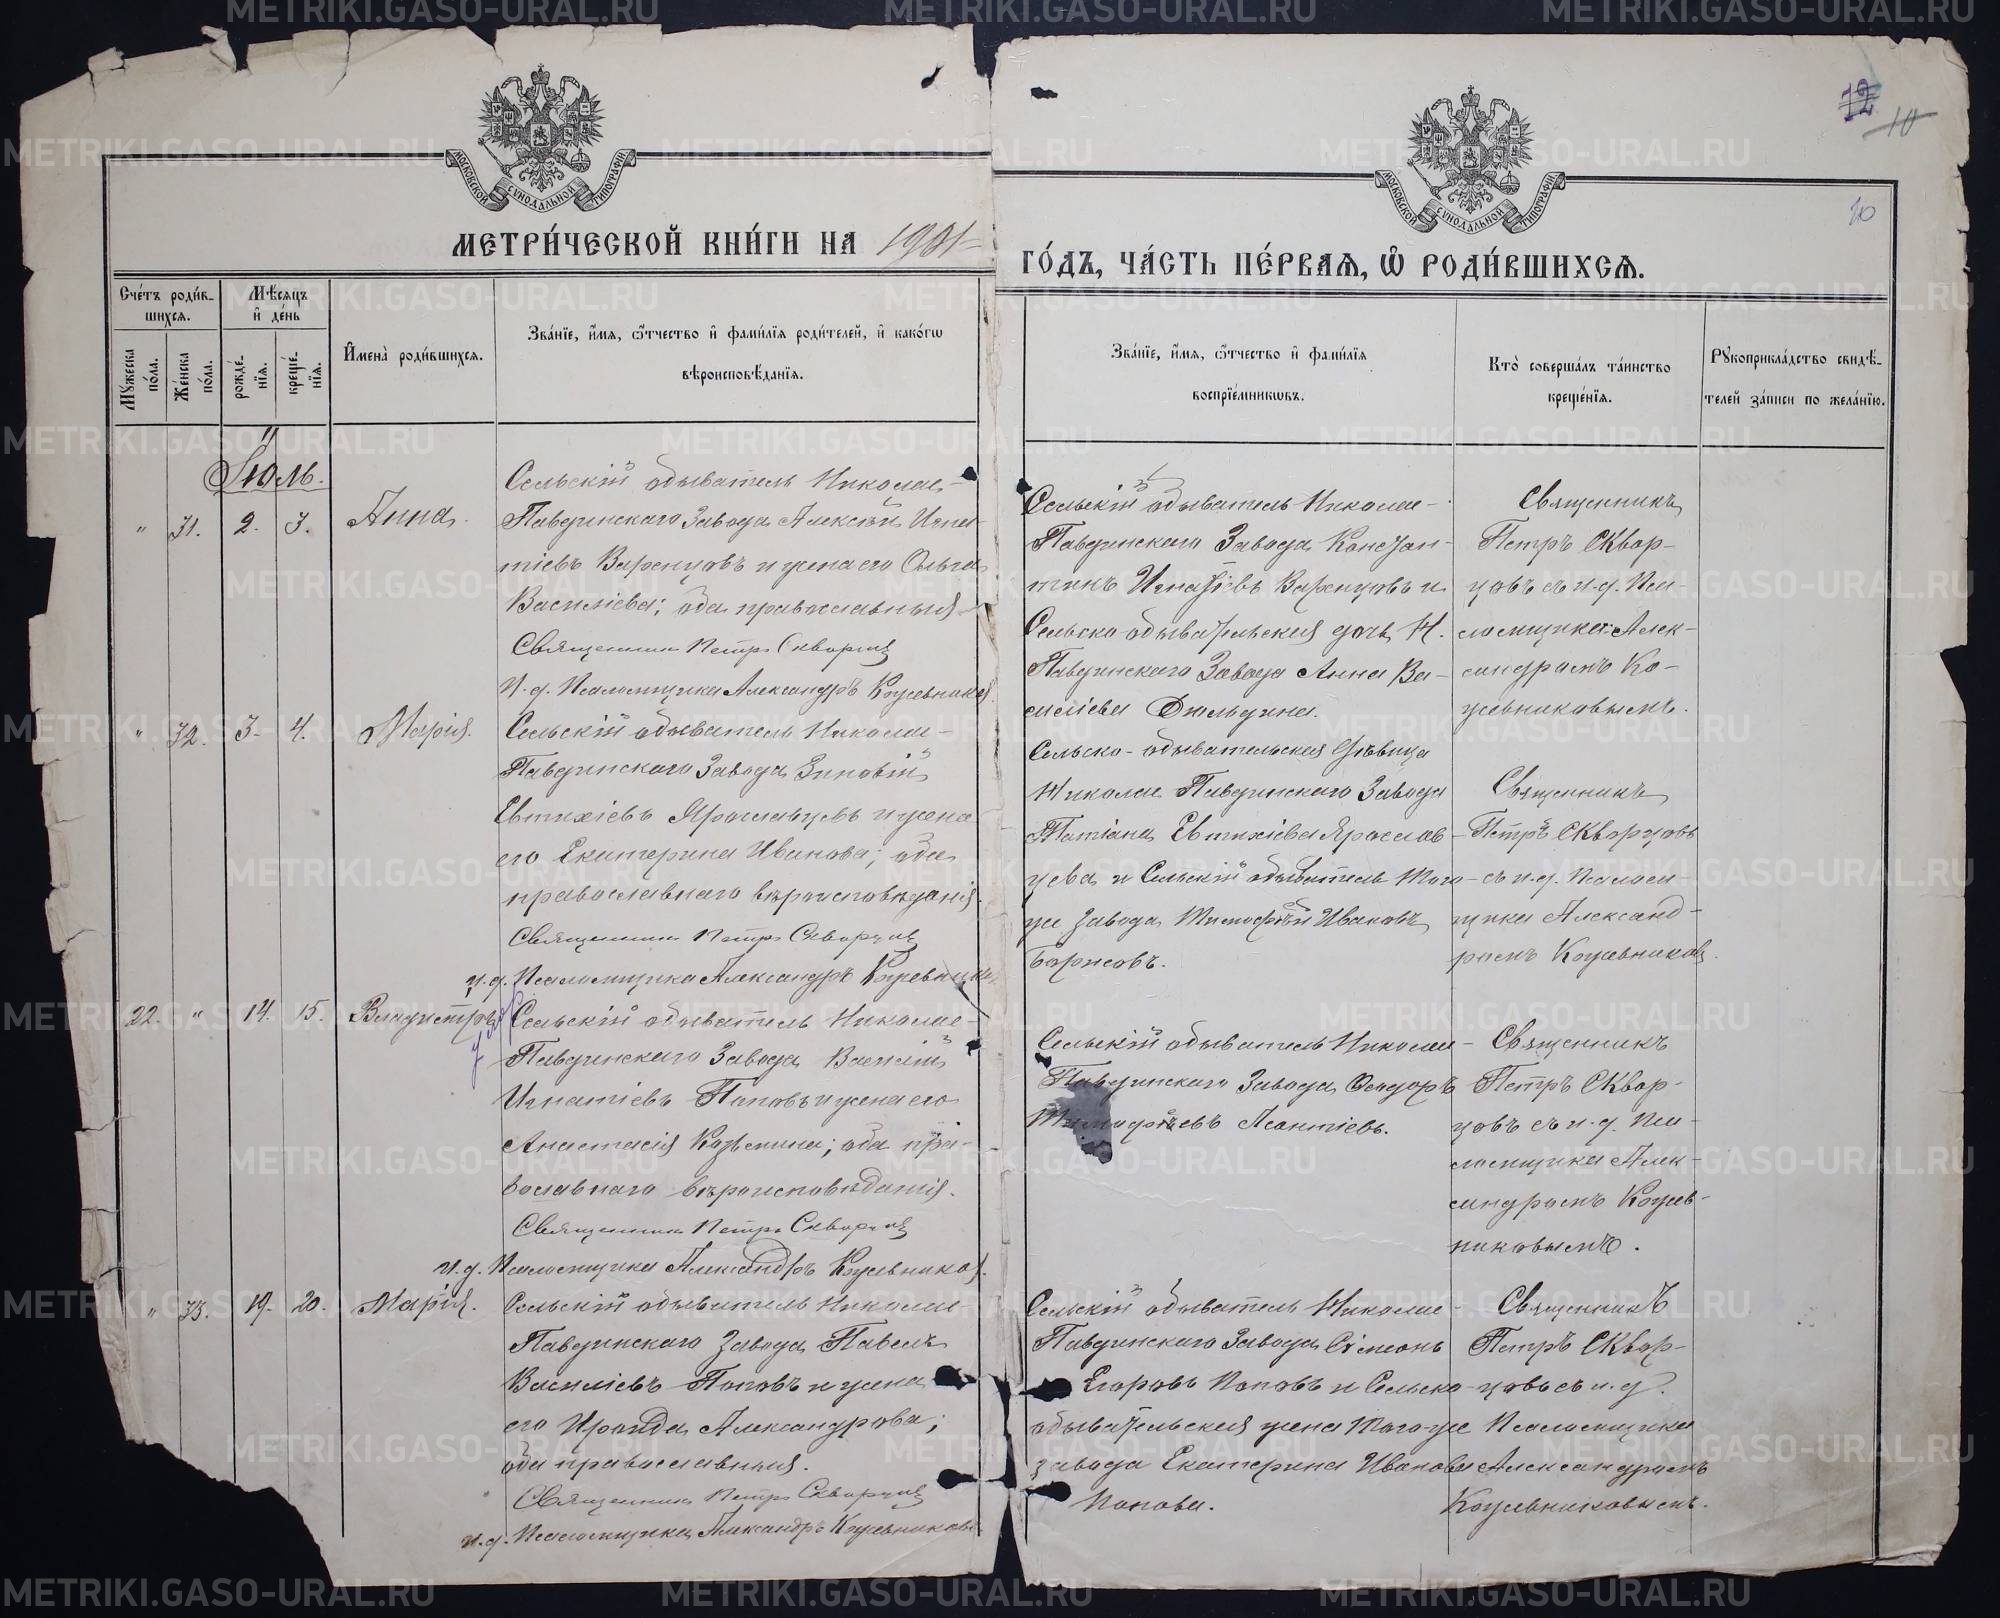 12
10
10
МОСКОВСКОЙ СУНОДАЛЬНОЙ ТИПОГРАФІИ
МОСКОВСКОЙ СУНОДАЛЬНОЙ ТИПОГРАФІИ
МЕТРИ́ЧЕСКОЙ КНИ́ГИ НА 1901
ГО́ДЪ, ЧА́СТЬ ПЕ́РВАѦ, Ѿ РОДИ́ВШИХСѦ.
Сче́тъ роди́в-
шихсѧ.
Мѣ́сѧцъ
и҆ де́нь
Мꙋжеска
по́ла.
Же́нска
по́ла.
рожде́-
нїѧ.
креще́-
нїѧ.
И҆мена̀ роди́вшихсѧ.
Зва́нїе, и҆́мѧ, ѻ҆́тчество и҆ фами́лїѧ роди́телей, и҆ како́гѡ
вѣроисповѣ́данїѧ.
Зва́нїе, и҆́мѧ, ѻ҆́тчество и҆ фами́лїѧ
воспрїе́мникѡвъ.
Кто̀ соверша́лъ та́инство
креще́нїѧ.
Рꙋкоприкла́дство свидѣ́-
телей за́писи по жела́нїю.
Іюль.
" 31. 2. 3. Анна.
Сельскій обыватель Николае-
Павдинскаго Завода Алексѣй Игна-
тіевъ Варенцовъ и жена его Ольга
Василіева; оба православныя.
Священник Петр Скворцов
И.д. Псаломщика Александръ Кожевников
Сельскій обыватель Николае-
Павдинскаго Завода Констан-
тинъ Игнатіевъ Варенцовъ и
Сельско-обывательская дочь Н.
Павдинскаго Завода Анна Ва-
силіева Дюльдина.
Священникъ
Петръ Сквор-
цовъ съ и.д. Пса-
ломщика Алек-
сандромъ Ко-
жевниковымъ.
" 32. 3. 4. Марія.
Сельскій обыватель Николае-
Павдинскаго Завода Зиновій
Евтихіевъ Ярославцевъ и жена
его Екатерина Иванова; оба
православнаго вѣроисповѣданія.
Священник Петр Скворцов
и.д. Псаломщика Александръ Кожевников
Сельско-обывательская дѣвица
Николае Павдинскаго Завода
Татіана Евтихіева Ярослав-
цева и Сельскій обыватель того-
же завода Тимофѣй Ивановъ
Борисовъ.
Священникъ
Петръ Скворцовъ
съ и.д. Псалом-
щика Александ-
ромъ Кожевников
22. " 14. 15. Владимiръ
умер
Сельскій обыватель Николае-
Павдинскаго Завода Василій
Игнатіевъ Поповъ и жена его
Анастасія Козьмина; оба пра-
вославнаго вѣроисповѣданія.
Священник Петр Скворцов
и.д. Псаломщика Александръ Кожевников.
Сельскій обыватель Николае-
Павдинскаго Завода Ѳеодоръ
Тимофѣевъ Леонтіевъ.
Священникъ
Петръ Сквор-
цовъ съ и.д. Пса-
ломщика Алек-
сандромъ Кожев-
никовымъ.
" 33. 19. 20. Марія.
Сельскій обыватель Николае-
Павдинскаго Завода Павелъ
Василіевъ Поповъ и жена
его Ираида Александрова;
оба православныя.
Священник Петр Скворцов
и.д. Псаломщика Александръ Кожевников
Сельскій обыватель Николае-
Павдинскаго Завода Симеонъ
Егоровъ Поповъ и Сельско-
обывательская жена того-же
завода Екатерина Иванова
Попова.
Священникъ
Петръ Сквор-
цовъ съ и.д.
Псаломщика
Александромъ
Кожевниковымъ.
METRIKI.GASO-URAL.RU